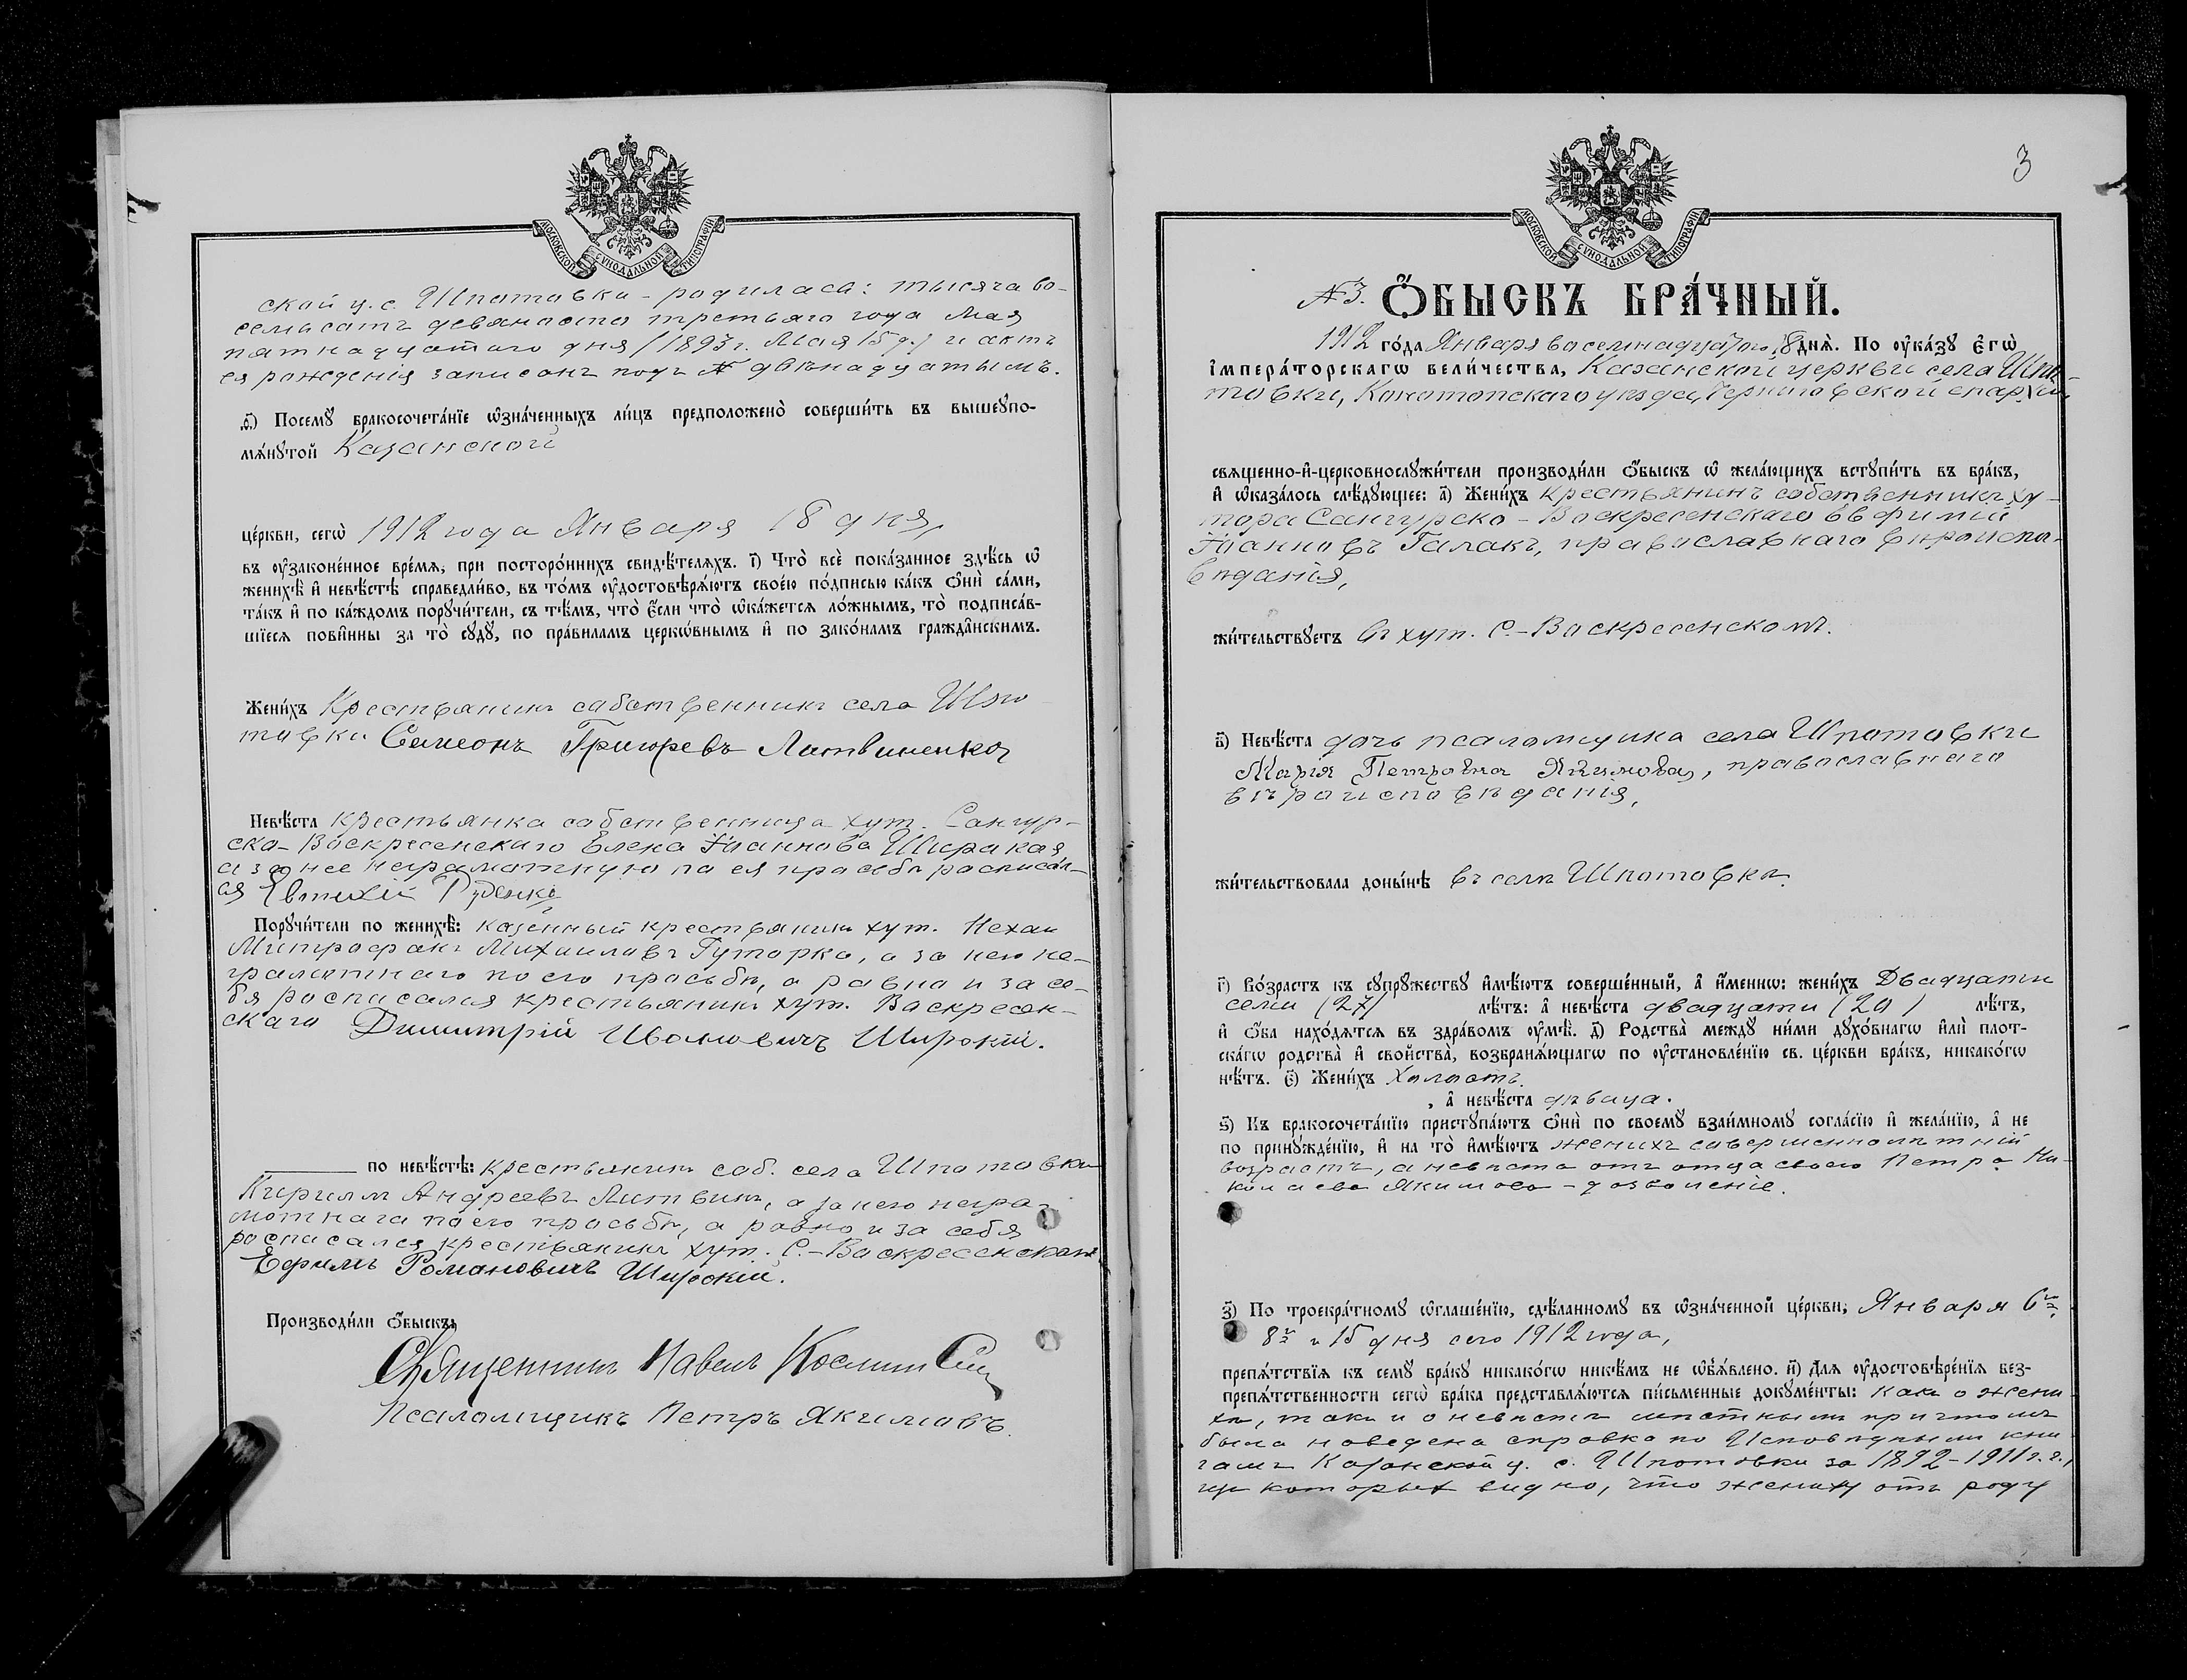 МОСКОВСКОЙ СѴНОДАЛЬНОЙ ТИПОГРАФІИ
ской ц. с. Шпотовки - родилась: тысяча во-
семьсотъ девяносто третьяго года Мая
пятнадцатаго дня /1893 г. Мая 15 д./ и актъ
ея рожденія записанъ подъ № двѣнадцатымъ.
ѳ҃) Посемꙋ̀ бракосочета́нїе ѡ҆зна́ченныхъ ли́цъ предположено̀ соверши́ть въ вышеꙋпо-
мѧ́нꙋтой Казанской
це́ркви, сегѡ̀ 1912 года Января 18 дня,
въ ᲂу҆зако́ненное вре́мѧ, при посторо́ннихъ свидѣ́телѧхъ. і҃) Что̀ всѐ пока́занное здѣ́сь ѡ҆
женихѣ̀ и҆ невѣ́стѣ справедли́во, въ то́мъ ᲂу҆достовѣрѧ́ютъ свое́ю по́дписью ка́къ ѻ҆нѝ са́ми,
та́къ и҆ по ка́ждомъ порꙋчи́тели, съ тѣ́мъ, что̀ є҆́сли что̀ ѡ҆ка́жетсѧ ло́жнымъ, то̀ подписа́в-
шїесѧ пови́нны за то̀ сꙋдꙋ̀, по пра́виламъ церко́внымъ и҆ по зако́намъ гражда́нскимъ.
Жени́хъ Крестьянинъ собственникъ села Шпо-
товки Симеонъ Григорьевъ Литвиненко
Невѣ́ста крестьянка собственница хут. Сангур-
ско-Воскресенскаго Елена Іоаннова Широкая,
а за нее неграмотную по ея просьбѣ росписал-
ся Евтихій Руденко
Порꙋчи́тели по женихѣ̀: казенный крестьянинъ хут. Нехаи
Митрофанъ Михаиловъ Гуторка, а за него не-
грамотнаго по его просьбѣ, а равно и за се-
бя росписался крестьянинъ хут. Воскресен-
скаго Димитрій Ивановичъ Широкій.
по невѣ́стѣ: крестьянинъ соб. села Шпотовки
Кириллъ Андреевъ Литвинъ, а за него негра-
мотнаго по его просьбѣ, а равно и за себя
росписался крестьянинъ хут. С.-Воскресенскаго
Ефимъ Романовичъ Широкій.
Производи́ли ѻ҆́быскъ:
Священникъ Павелъ
Псаломщикъ Петръ Якимовъ.
3
МОСКОВСКОЙ СѴНОДАЛЬНОЙ ТИПОГРАФІИ
№ 3. Ѻ҆́БЫСКЪ БРА́ЧНЫЙ.
1912 го́да Января восемнадцатаго 18 днѧ̀. По ᲂу҆ка́зꙋ Є҆гѡ̀
І҆мпера́торскагѡ вели́чества, Казанской церкви села Шпо-
товки, Конотопскаго уѣзда, Черниговской епархіи,
свѧще́нно-и҆-церковнослꙋжи́тели производи́ли ѻ҆́быскъ ѡ҆ жела́ющихъ встꙋпи́ть въ бра́къ,
и҆ ѡ҆каза́лось слѣ́дꙋющее: а҃) Жени́хъ крестьянинъ собственникъ ху-
тора Сангурско-Воскресенскаго Евфимій
Іоанновъ Галакъ, православнаго вѣроиспо-
вѣданія,
жи́тельствꙋетъ въ хут. С.-Воскресенскомъ.
в҃) Невѣ́ста дочь псаломщика села Шпотовки
Марія Петровна Якимова, православнаго
вѣроисповѣданія,
жи́тельствовала доны́нѣ въ селѣ Шпотовкѣ.
г҃) Во́зрастъ къ сꙋпрꙋ́жествꙋ и҆мѣ́ютъ соверше́нный, а҆ и҆́менно: жени́хъ Двадцати
семи (27) лѣ́тъ: а҆ невѣ́ста двадцати (20) лѣ́тъ,
и҆ ѻ҆́ба нахо́дѧтсѧ въ здра́вомъ ᲂу҆мѣ̀. д҃) Родства̀ междꙋ̀ ни́ми дꙋхо́внагѡ и҆лѝ плот-
ска́гѡ родства̀ и҆ свойства̀, возбранѧ́ющагѡ по ᲂу҆становле́нїю св. це́ркви бра́къ, никако́гѡ
нѣ́тъ. є҃) Жени́хъ Холостъ.
, а҆ невѣ́ста дѣвица.
ѕ҃) Къ бракосочета́нїю пристꙋпа́ютъ ѻ҆нѝ по своемꙋ̀ взаи́мномꙋ согла́сїю и҆ жела́нїю, а҆ не
по принꙋжде́нїю, и҆ на то̀ и҆мѣ́ютъ женихъ совершеннолѣтній
возрастъ, а невѣста отъ отца своего Петра Ни-
колаева Якимова - дозволеніе.
з҃) По троекра́тномꙋ ѡ҆глаше́нїю, сдѣ́ланномꙋ въ ѡ҆зна́ченной це́ркви, Января 6го,
8го и 15 дня сего 1912 года,
препѧ́тствїѧ къ семꙋ̀ бра́кꙋ никако́гѡ никѣ́мъ не ѡ҆б̾ѧ́влено. и҃) Длѧ ᲂу҆достовѣре́нїѧ без-
препѧ́тственности сегѡ̀ бра́ка представлѧ́ютсѧ пи́сьменные докꙋме́нты: какъ о жени-
хѣ, такъ и о невѣстѣ мѣстнымъ причтомъ
была наведена справка по Исповѣднымъ кни-
гамъ Казанской ц. с. Шпотовки за 1892-1911 г.г.,
изъ которыхъ видно, что жениху отъ роду